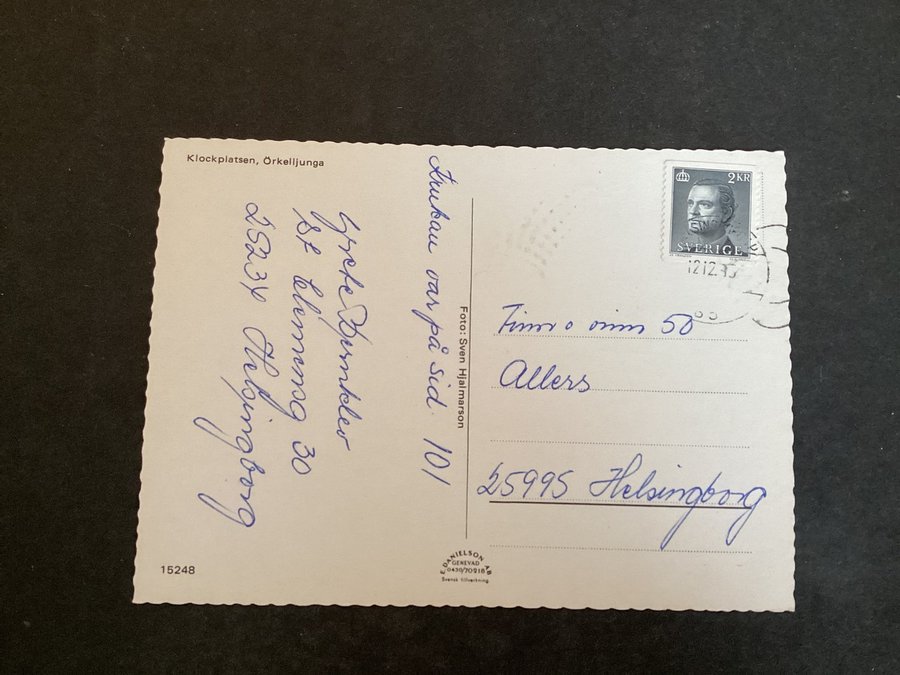 Klockplatsen, Örkelljunga
Krukan var på sid. 101
St Clemensg 30
25234 Helsingborg
Foto: Sven Hjalmarson
2 KR
SVERIGE
12.12.
Finn o vinn 50
Allers
25995 Helsingborg
15248
E. DANIELSON AB
GENEVAD
0430/70218
Svensk tillverkning